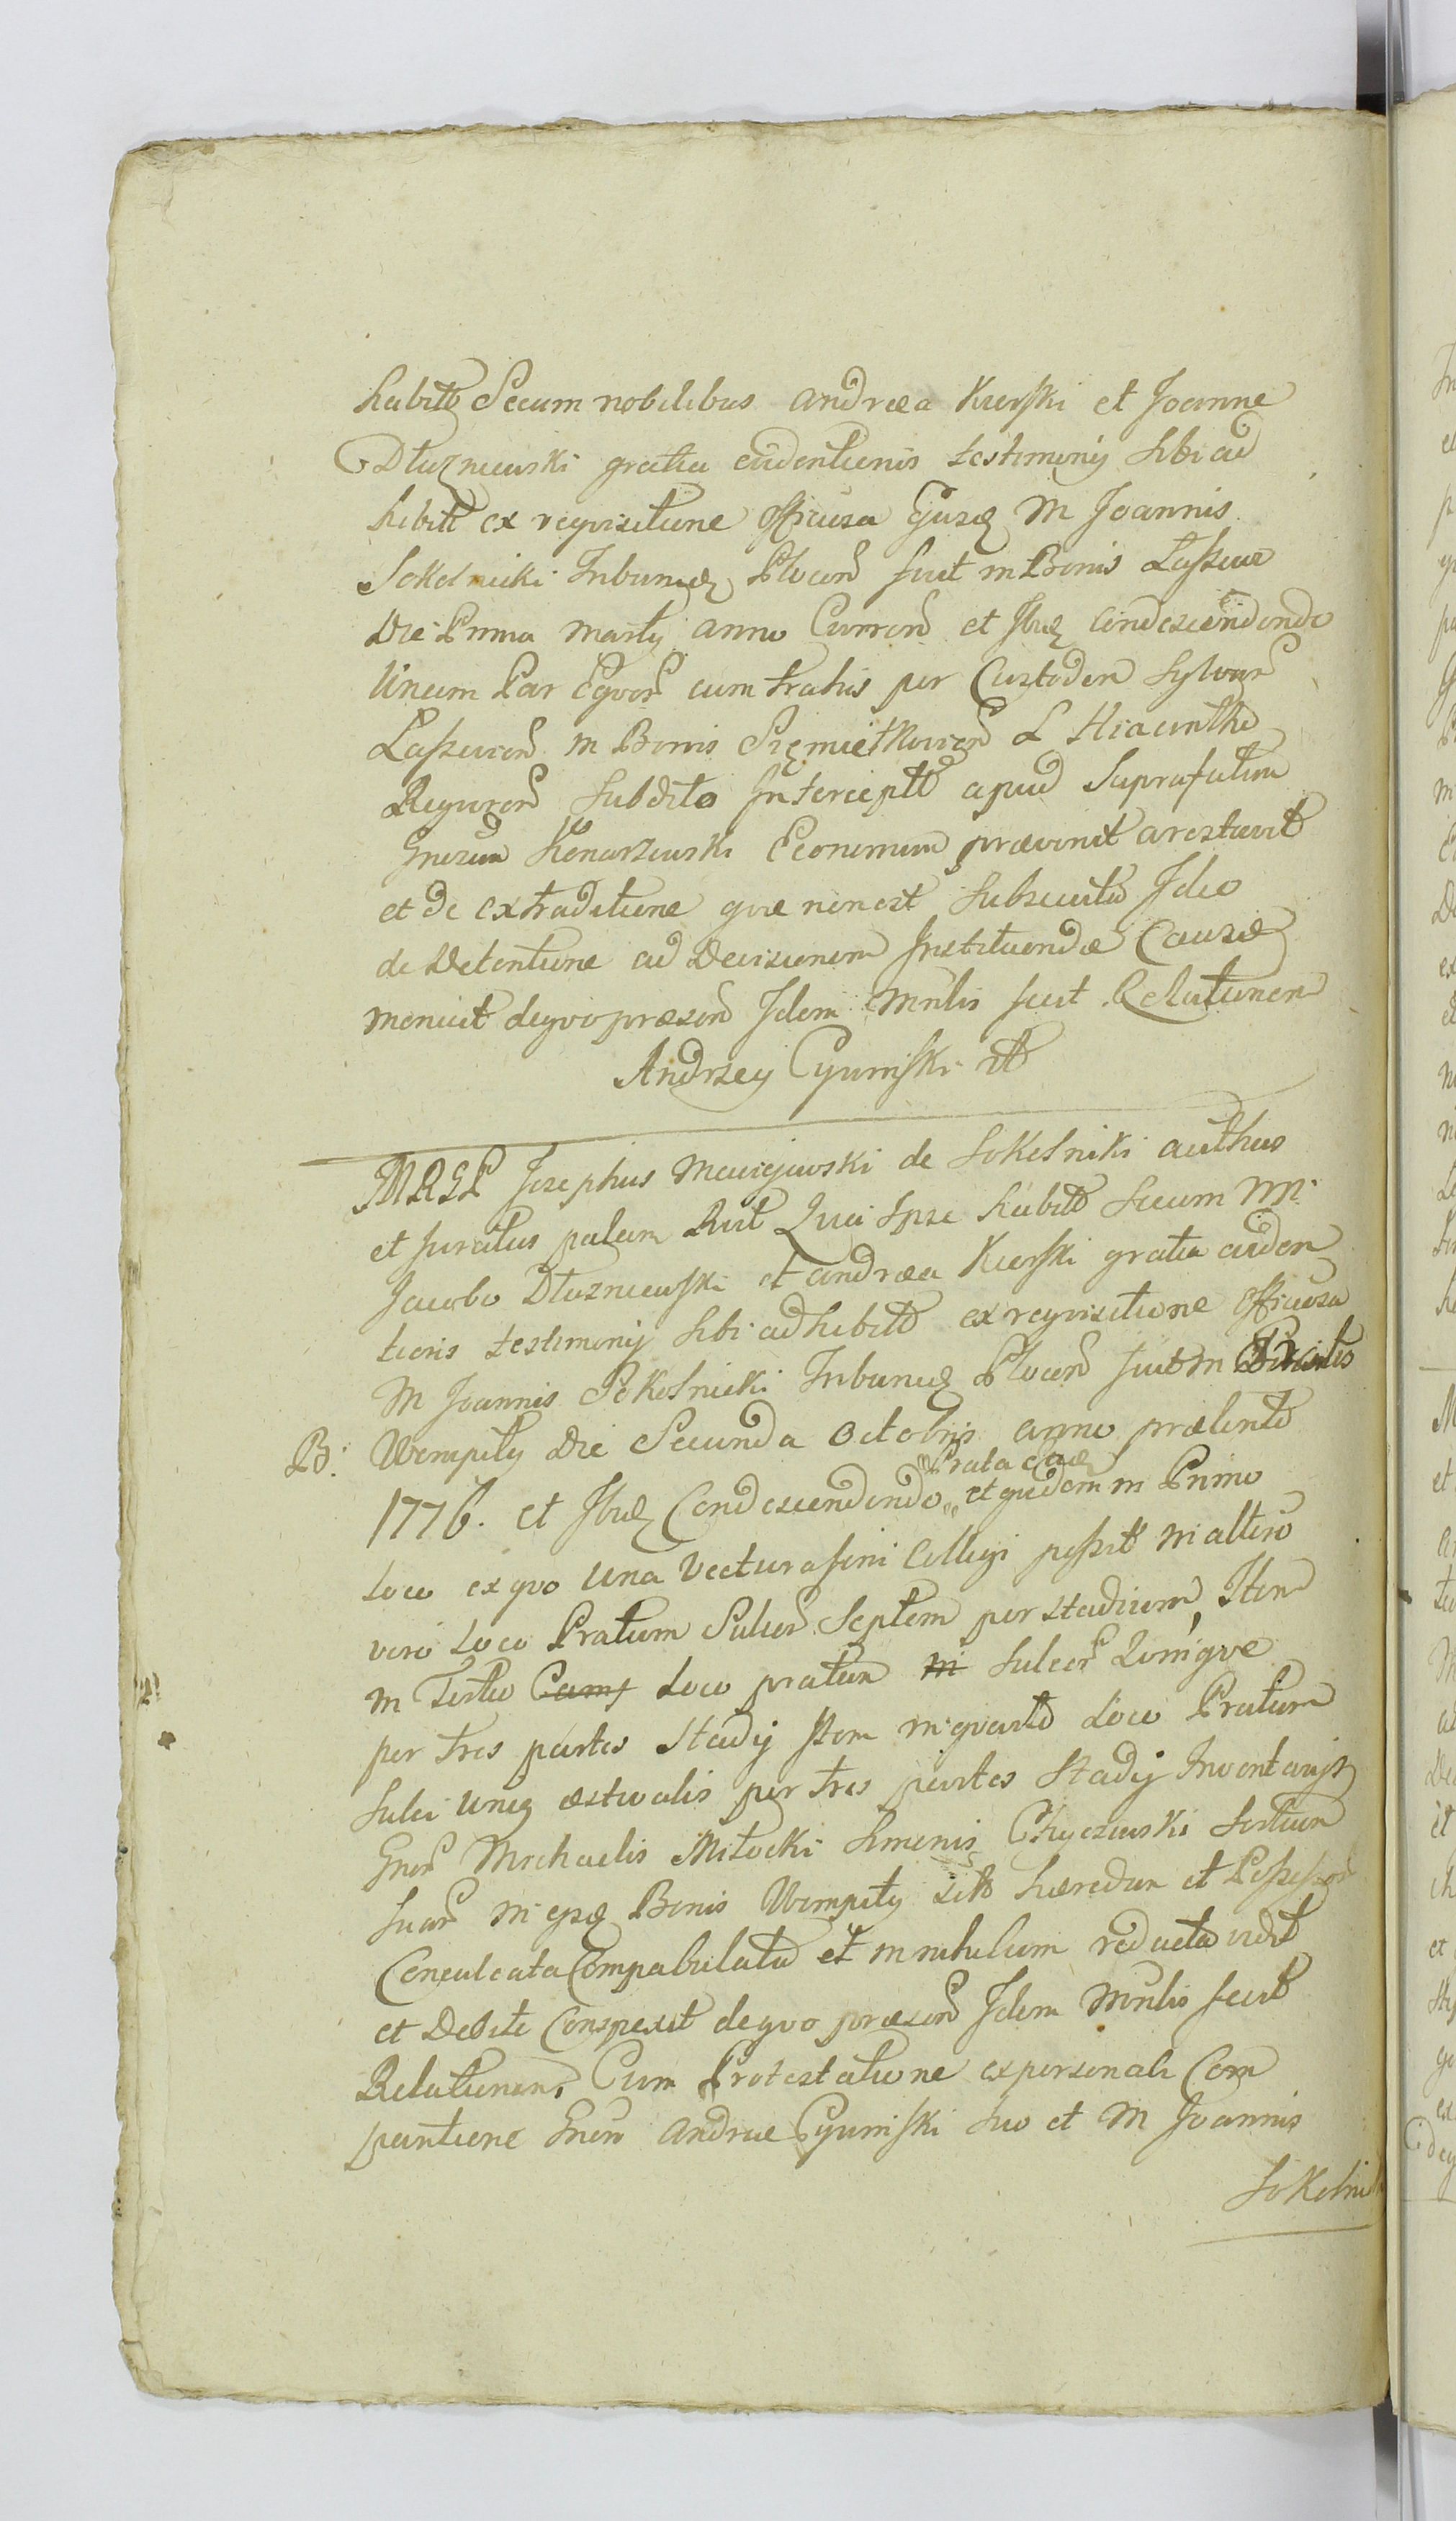 habitis Secum nobilibus Andrea Kierski et Joanne
Dłuzniewski gratia evidentionis testimonij sibi ad
hibitt ex reqvisitione officiosa Ejusd M Joannis
Sokolnicki Tribunid Plocen fuit in Bonis Laszewo
Die Prima Martij anno Curren et Ibid condescendendo
Unum Par Eqvor cum trahis per Custodem Sylvar
Laszewien in Bonis Siemiętkowien L Hiacintho
Reguren Subdito Intercepta apud Suprafatum
Gnosum Konarzewski Economum prævenit arestavit
et de extraditione qvæ non est Subsecuta Ideo
de Detentione ad Decisionem Instituendæ Causæ
monuit deqvo præsen Idem Mnlis fecit Relationem
Andrzey Cyuniski
MRGP Josephus Maciejewski de Sokolniki authus
et Juratus palam Rvit Qvia Ipse habitt secum NN
Jacobo Dłuzniewski et andrea Kierski gratia eviden
tionis testimonij sibi adhibitt ex reqvisitione officiosa
M Joannis Sokolnicki Tribunid Plocen fuit in
B: Wempiły Die Secunda Octobris anno præterito
Prata
1776. et Ibid Condescendendo et qvidem in Primo
loco ex qvo una Vectura fœni Colligi possit in altero
vero Loco Pratum Sulcor Septem per stadium, Item
in Tertio Camp Loco pratum in Sulcor Qvinqve
per tres partes Stadij Item in qvarto Loco Pratum
Sulci unig æstivalis per tres partes Stadij
Gnor Michaelis Miłocki Simonis Chyczewski Sortium
Suar in Bonis Wempiły Hæredum et Possessor
Conculcata Compabulata et in nihilum redacta vidit
et Debite Conspexit deqvo præsen Idem Mnlis fecit
Relationem, Cum Protestatione ex personali Com
paritione Gnosi Andreæ Cyuniski suo et M Joannis
Sokolnic